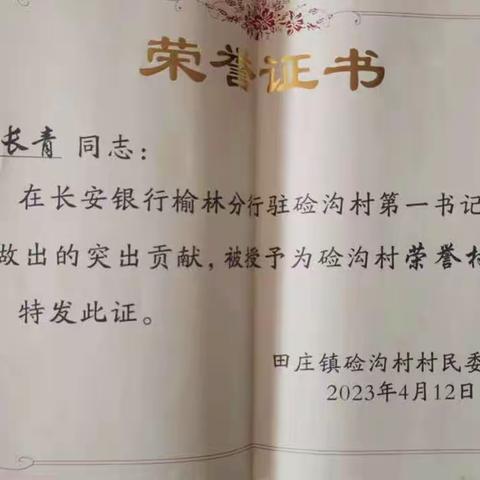 荣誉证书
长青 同志：
在长安银行榆林分行驻硷沟村第一书记
做出的突出贡献，被授予为硷沟村荣誉村
特发此证。
田庄镇硷沟村村民委
2023年4月12日